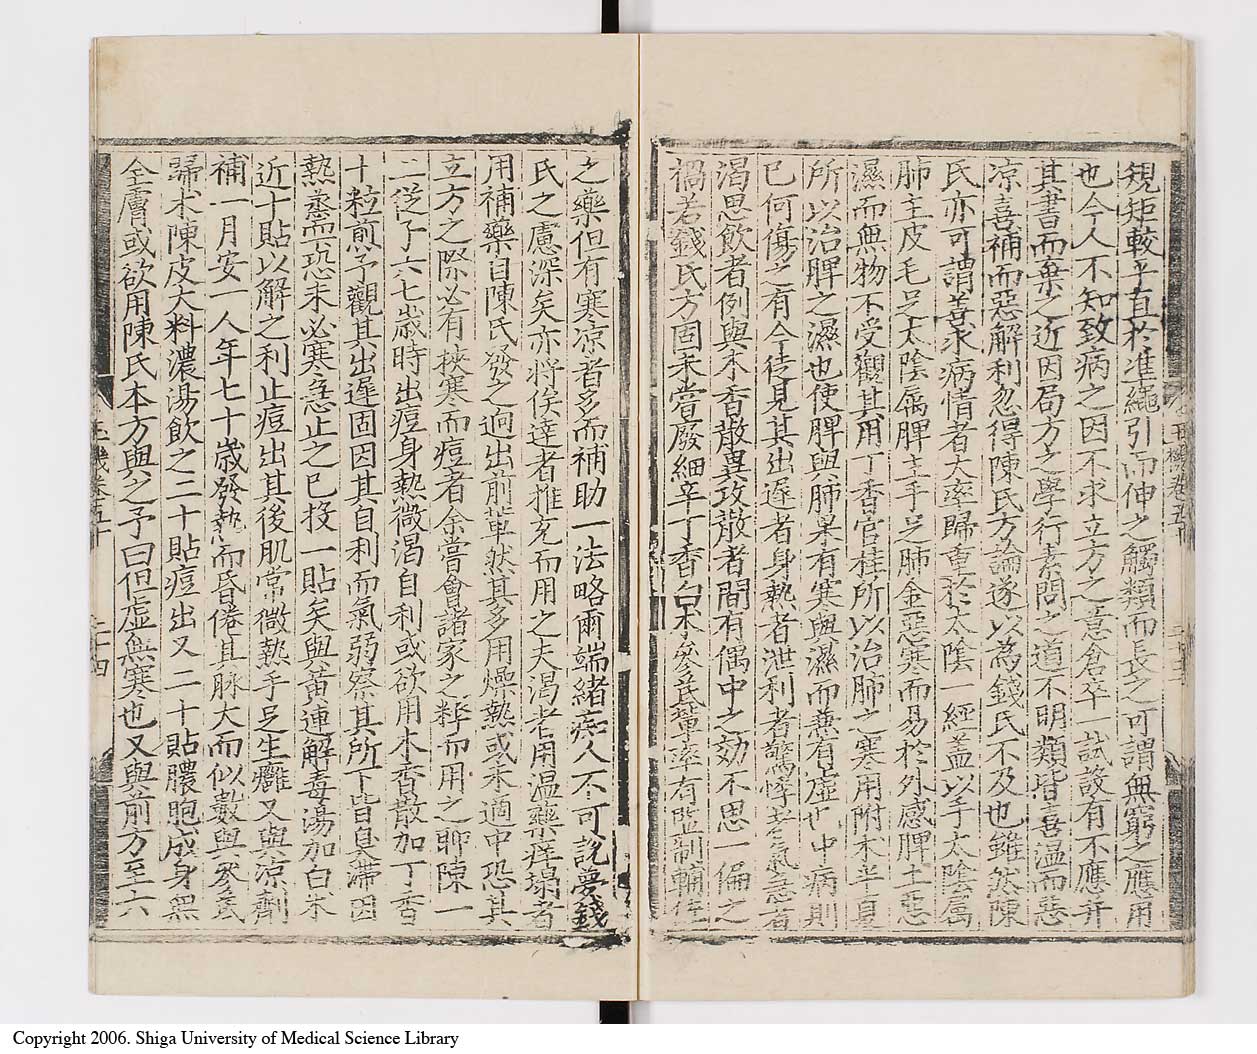 規矩較平直於准繩引而伸之觸類而長之可謂無窮之應用
也今人不知致病之因不求立方之意倉卒一試設有不應并
其書而棄之近因局方之學行素問之道不明類皆喜温而惡
凉喜補而惡解利忽得陳氏方論遂以為錢氏不及也雖然陳
氏亦可謂善求病情者大率歸重於太陰一經盖以手太陰属
肺主皮毛足太陰属脾主手足肺金惡寒而易於外感脾土惡
濕而無物不受觀其用丁香官桂所以治肺之寒用附木半夏
所以治脾之濕也使脾與肺果有寒與濕而兼有虛也中病則
已何傷之有今徒見其出遲者身熱者泄利者驚悸者氣急者
渴思飲者例與木香散異攻散者間有偶中之効不思一偏之
禍若錢氏方固未嘗廢細辛丁香白朮參芪輩率有監制輔佐
之藥但有寒凉者多而補助一法略爾端緒痴人不可說夢錢
氏之慮深矣亦將俟達者推充而用之夫渴者用温藥痒塌者
用補藥自陳氏發之迥出前輩然其多用燥熱或未適中恐其
立方之際必有挾寒而痘者余嘗會諸家之粹而用之聊陳一
二從子六七歲時出痘身熱微渴自利或欲用木香散加丁香
十粒煎予觀其出遲固因其自利而氣弱察其所下皆臭滯因
熱蒸而恐未必寒急止之已投一貼矣與黃連解毒湯加白朮
近十貼以解之利止痘出其後肌常微熱手足生癰又與凉劑
補一月安一人年七十歲發熱而昏倦且脉大而似數與參芪
歸朮陳皮大料濃湯飲之二十貼痘出又二十貼膿胞成身無
全膚或欲用陳氏本方與之予曰但虛無寒也又與前方至六
玉機卷五十
二十四